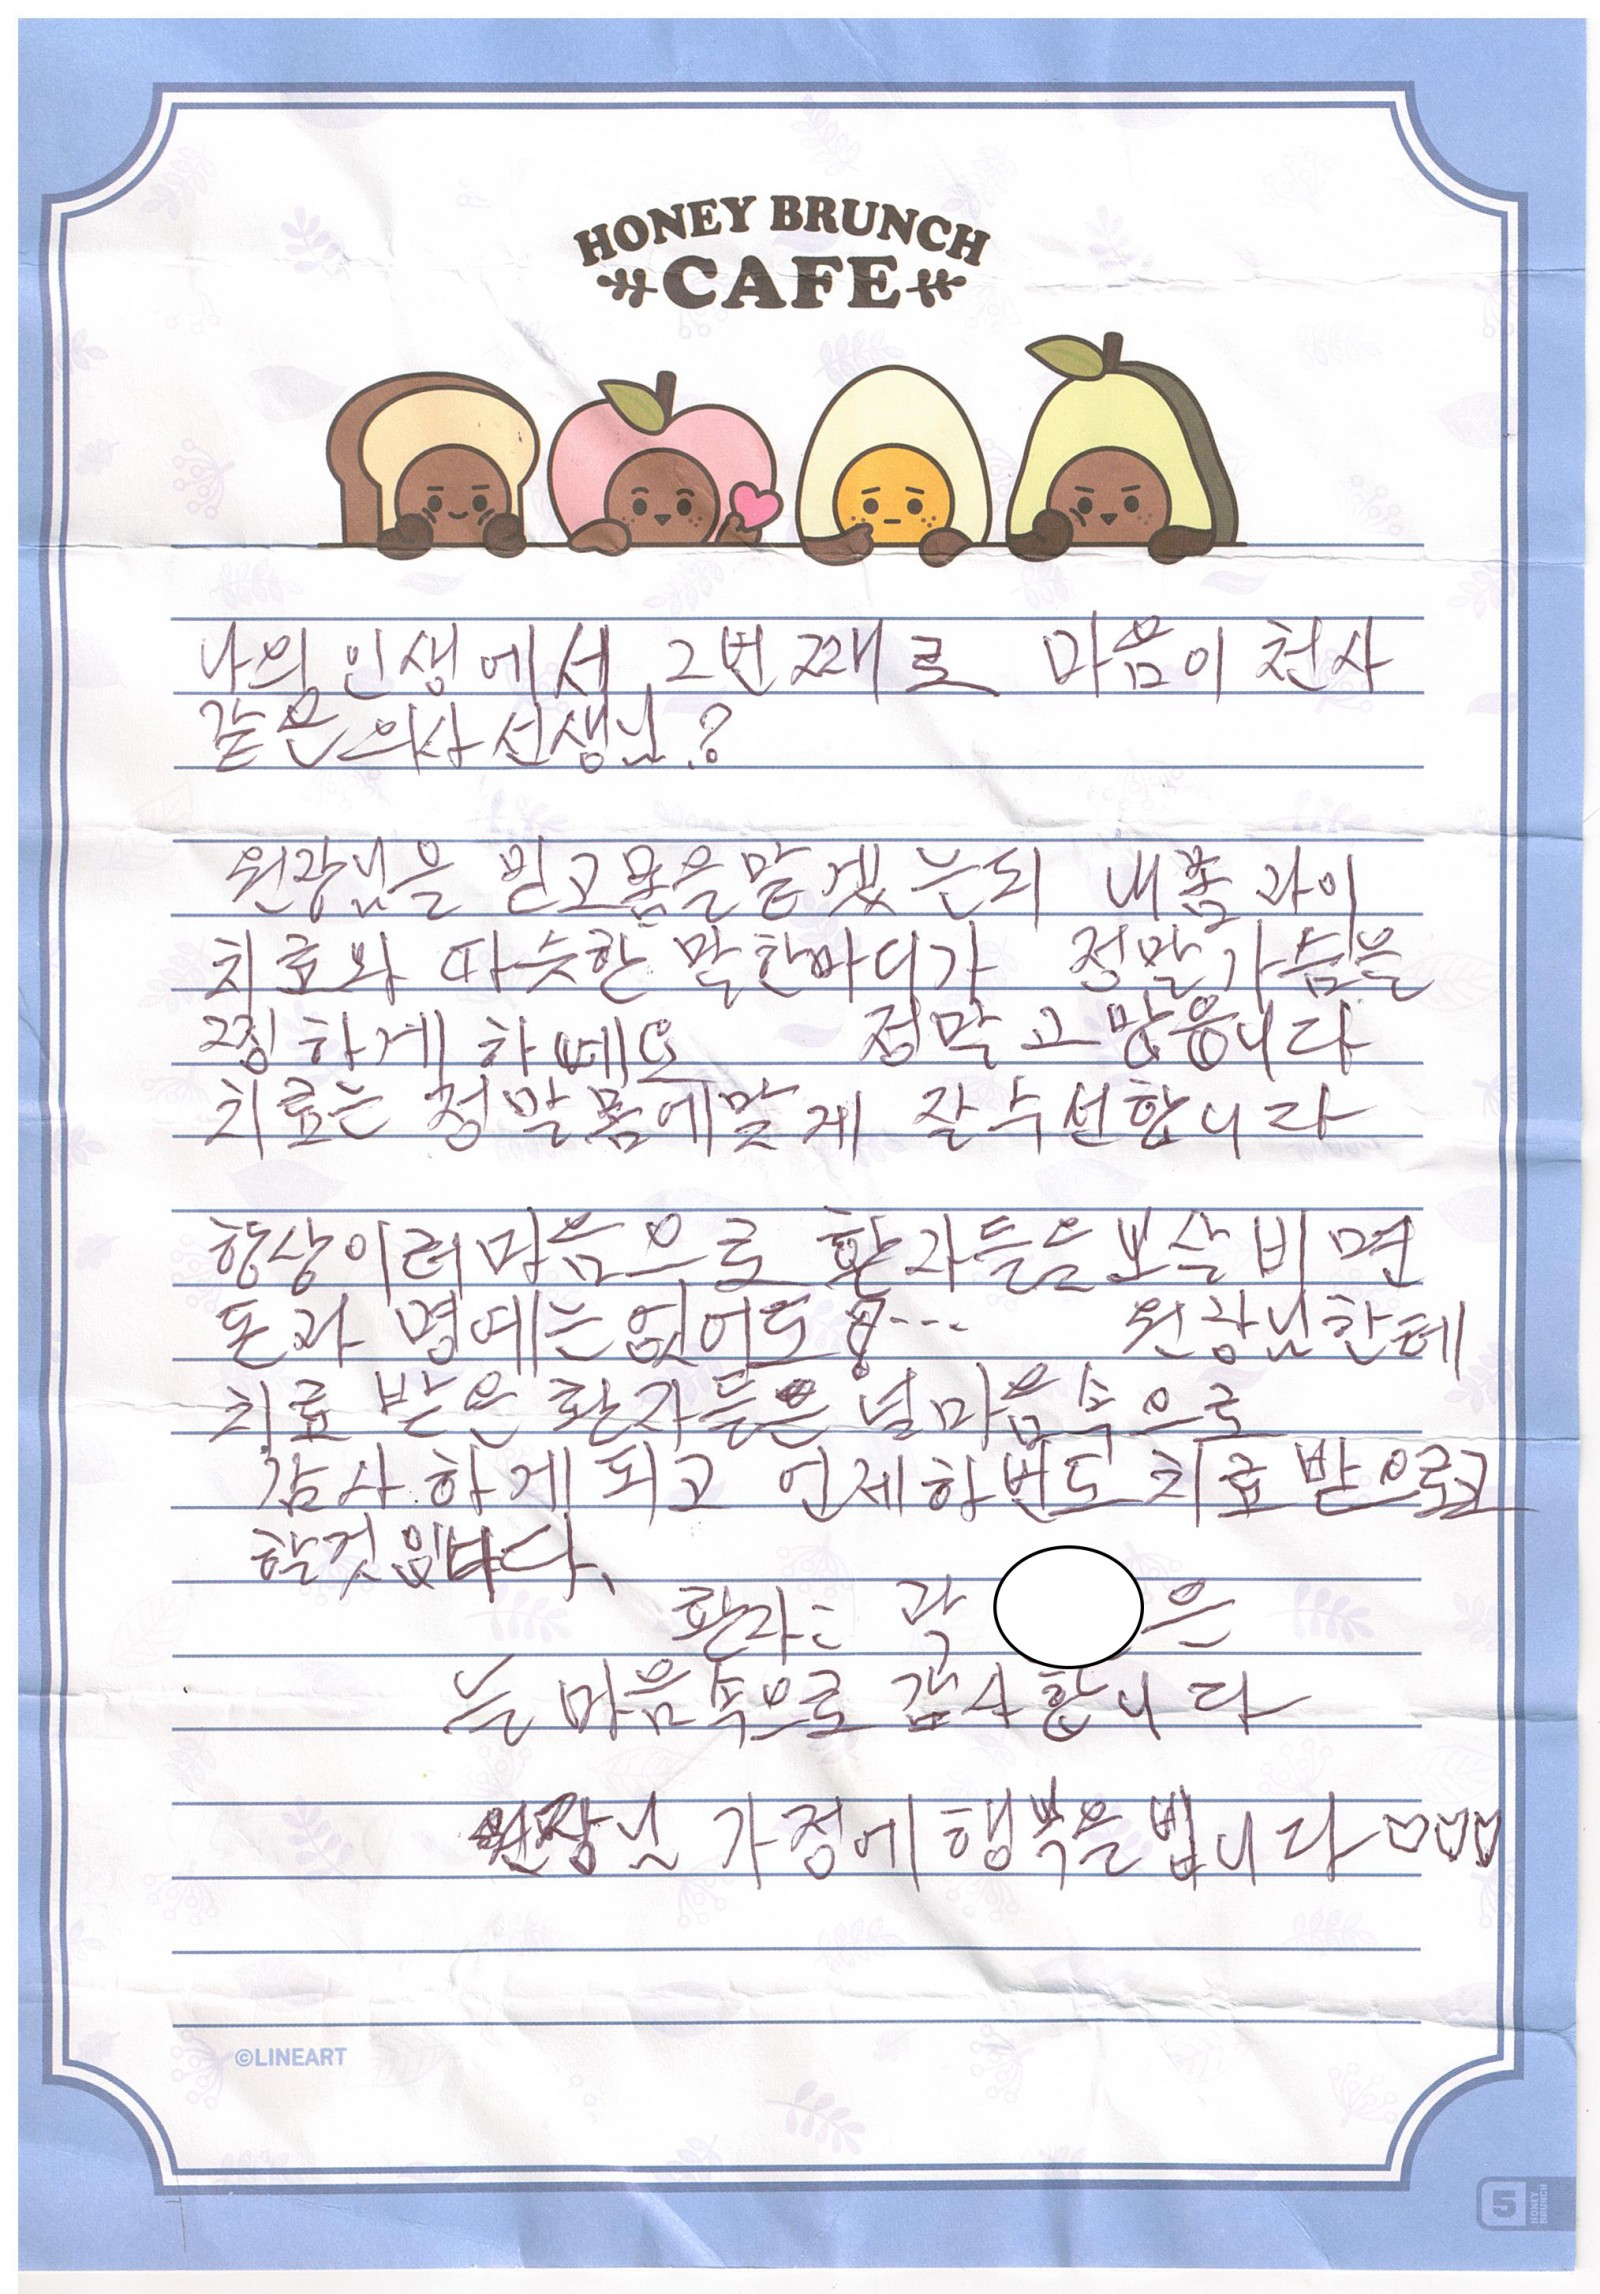 HONEY BRUNCH
CAFE
나의 인생에서 2번째로 마음이 천사
같은 의사 선생님?
원장님을 믿고 몸을 맡겼는되 내몸 과이
치료와 따슷한 말한마디가 정말 가슴을
찡하게 하떼요 정말 고맙읍니다
치료는 정말 몸에맞게 잘수선합니다
항상이러 마음으로 환자들을 보살비면
돈과 명예는 없어도 !--- 원장님한테
치료 받은 환자들은 널마음속으로
감사하게되고 언제한번도 치료받으로고
할것임니다.
환자는 곽 은
늘 마음속으로 감사합니다
원장님 가정에 행복을 빕니다 ♡♡♡
©LINEART
5
HONEY
BRUNCH